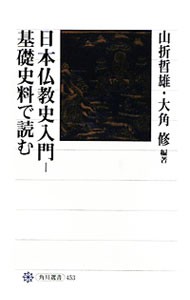 山折哲雄・大角 修 編著
日本仏教史入門—
基礎史料で読む
角川選書 453